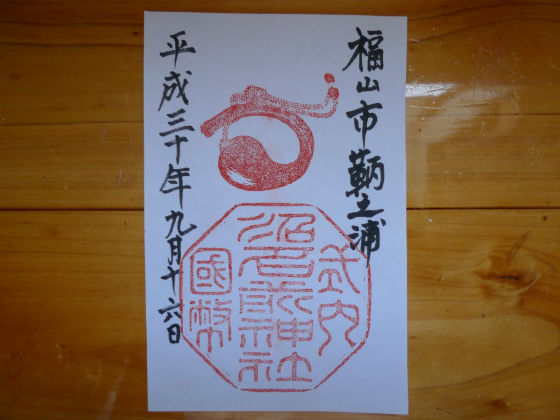 福山市鞆之浦
式内
沼名前神社
國幣
平成三十年九月十六日